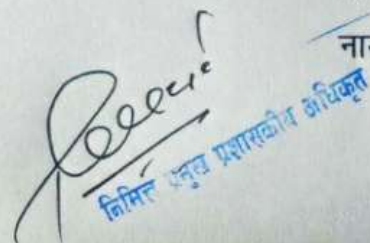 ना
निमित्त प्रमुख प्रशासकीय अधिकृत